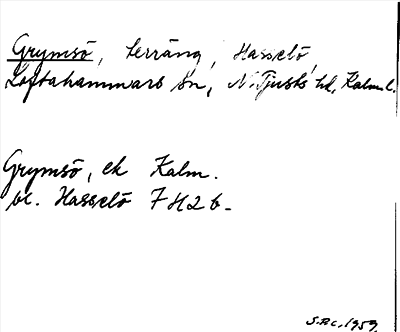 Grymsö, terräng, Hasselö,
Loftahammars sn, N. Tjusts hd, Kalm. l.
Grymsö, ek Kalm.
bl. Hasselö 7H2b.
S.P.C. 1959.